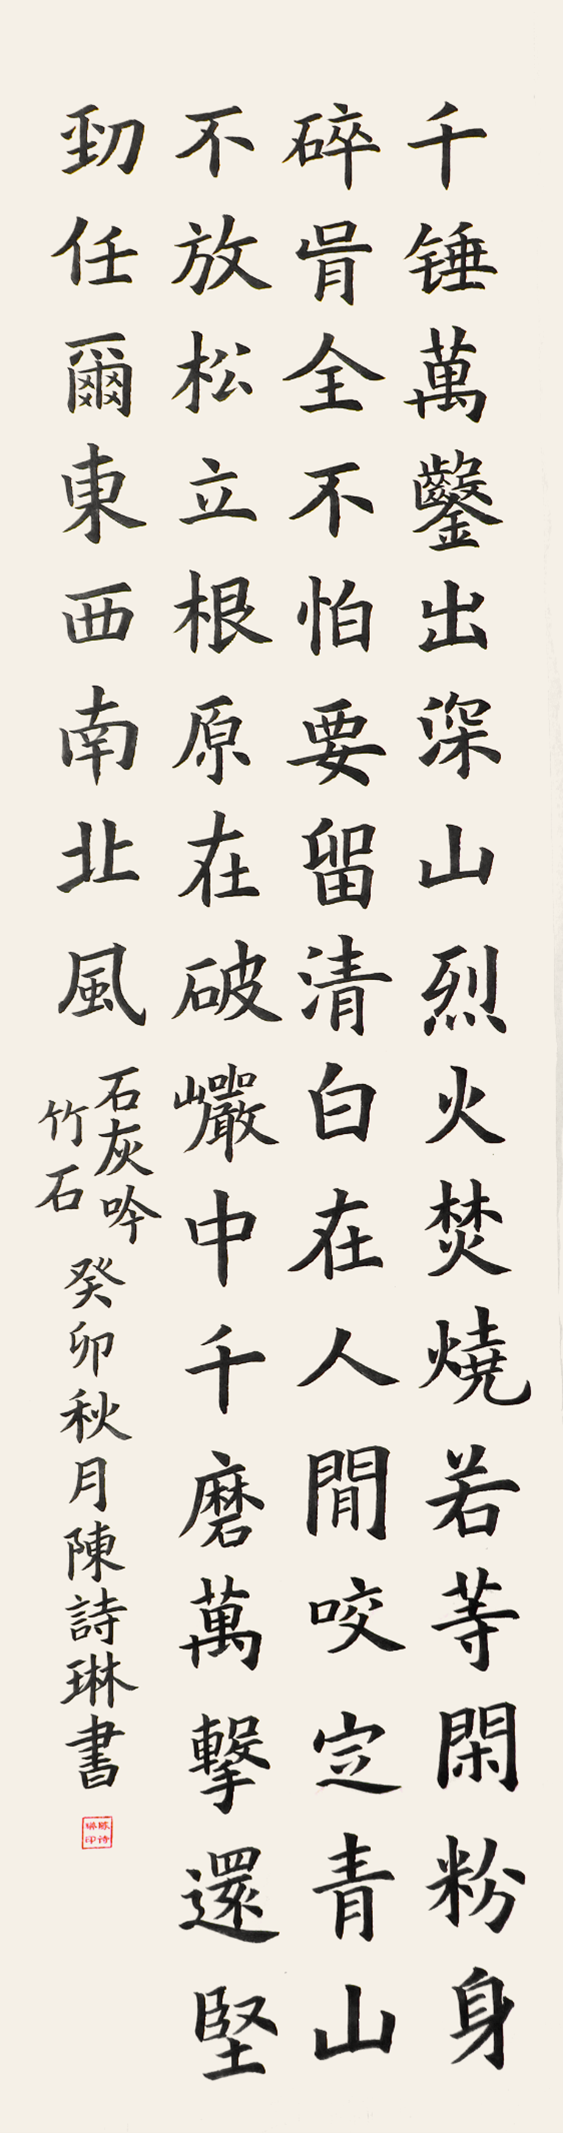 千锤萬鑿出深山烈火焚燒若等閑粉身
碎骨全不怕要留清白在人間咬定青山
不放松立根原在破巖中千磨萬擊還堅
勁任爾東西南北風
石灰吟
竹石
癸卯秋月陳詩琳書
陈诗琳印